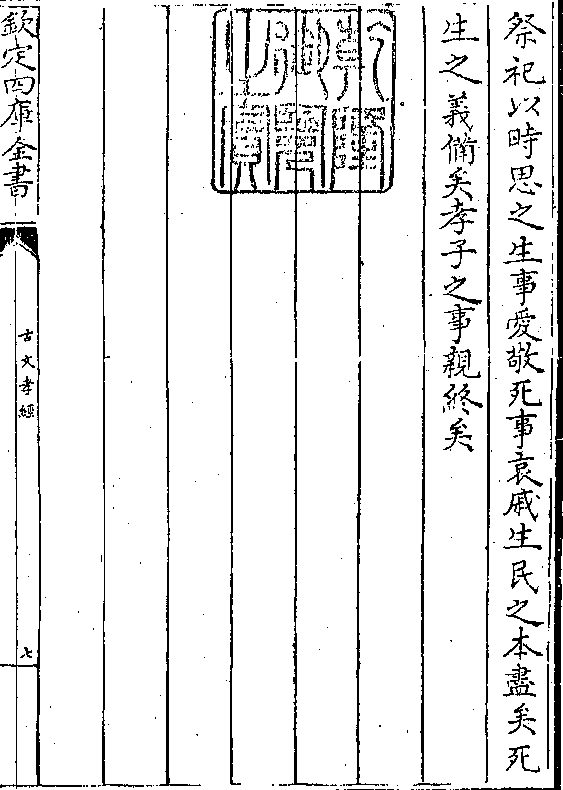 祭祀以時思之生事愛敬死事哀戚生民之本盡矣死
生之義備矣孝子之事親終矣
乾隆御覽之寶
欽定四庫全書
古文孝經
七